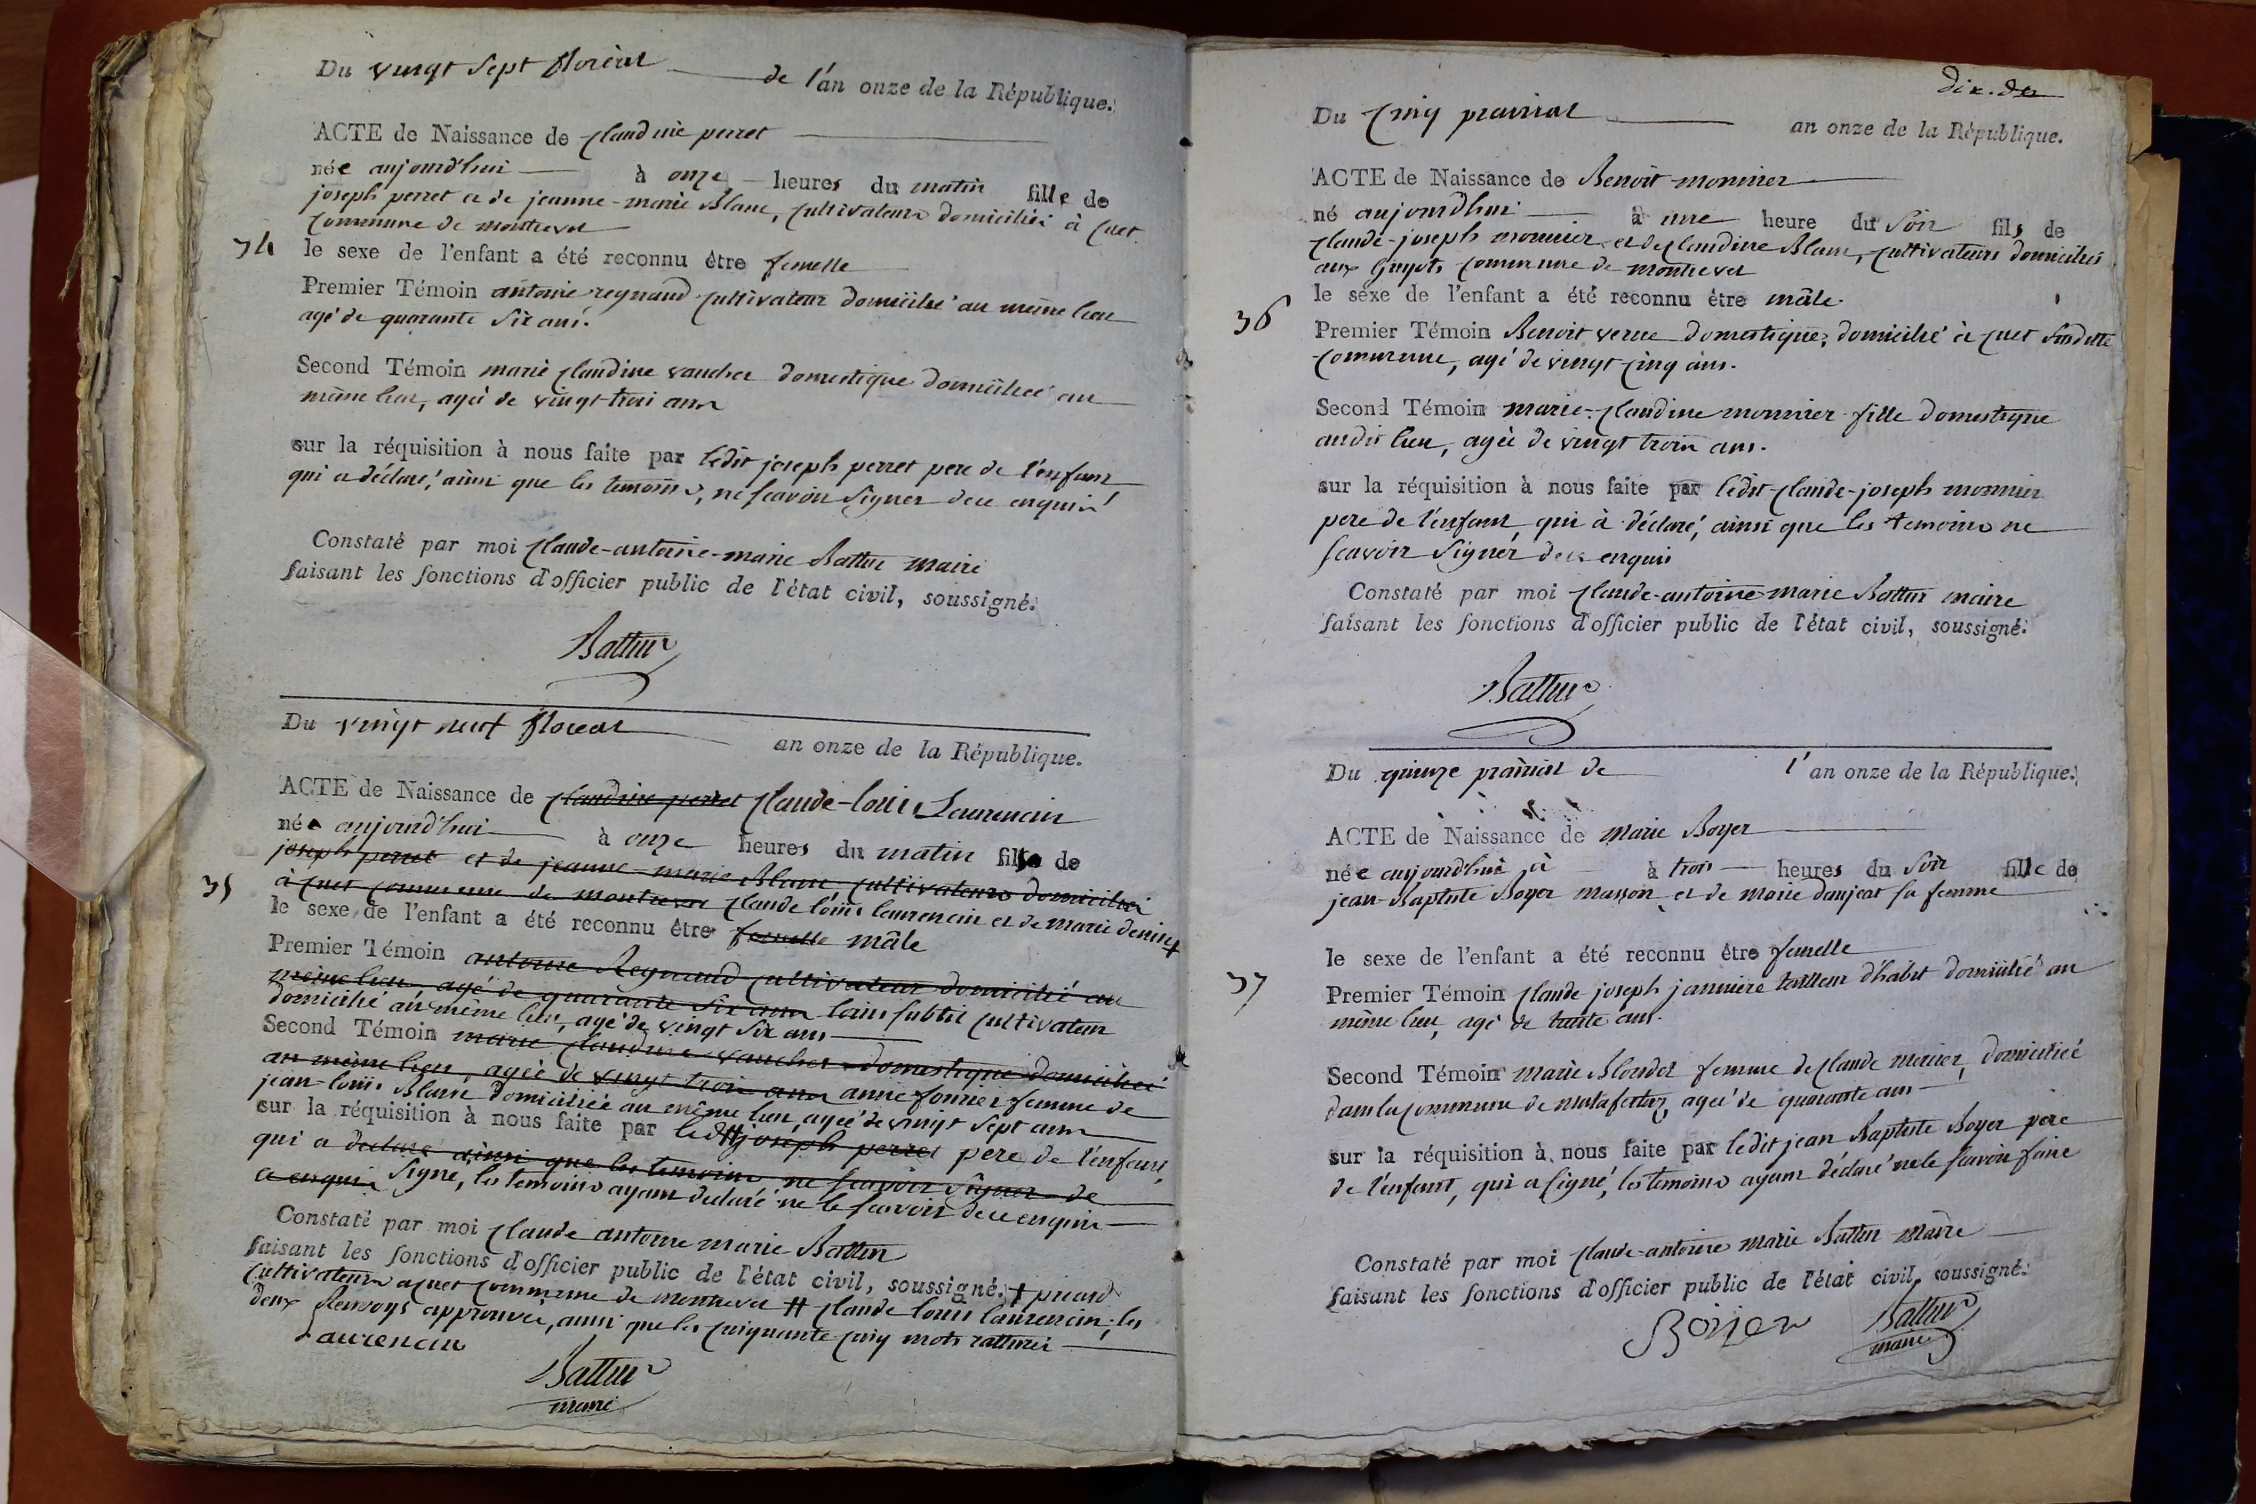 Du vingt sept floréal de l'an onze de la République.
ACTE de Naissance de Claudine perret
née aujourd'hui à onze heures du matin fille de
joseph perret et de jeanne-marie Blanc, cultivateurs domiciliés à Cuet
commune de montrevel
34
le sexe de l'enfant a été reconnu être femelle
Premier Témoin antoine regnaud cultivateur domicilié au même lieu
agé de quarante six ans.
Second Témoin marie claudine vaucher domestique domiciliée au
même lieu, agée de vingt-trois ans
sur la réquisition à nous faite par ledit joseph perret pere de l'enfant
qui a déclaré, ainsi que les temoins, ne scavoir signer de ce enquis
Constaté par moi Claude-antoine-marie Battur maire
faisant les fonctions d'officier public de l'état civil, soussigné.
Battur
Du vingt neuf floreal an onze de la République.
ACTE de Naissance de Claudine perret Claude-louis Laurencin
née aujourd'hui à onze heures du matin fils de
joseph perret et de jeanne-marie Blanc, cultivateurs domiciliés
35
à Cuet commune de montrevel Claude louis laurencin et de marie denise +
le sexe de l'enfant a été reconnu être femelle mâle
Premier Témoin antoine Regnaud cultivateur domicilié au
même lieu, agé de quarante six ans louis subtil cultivateur
domicilié au même lieu, agé de vingt six ans
Second Témoin marie claudine vaucher domestique domiciliée
au même lieu, agée de vingt trois ans anne fornier femme de
jean-louis Blanc domiciliée au même lieu, agée de vingt sept ans
sur la réquisition à nous faite par ledit # joseph perret pere de l'enfant,
qui a declaré ainsi que les temoins ne scavoir signer de
ce enquis signé, les temoins ayant declaré ne le scavoir de ce enquis
Constaté par moi Claude antoine marie Battur
faisant les fonctions d'officier public de l'état civil, soussigné. + picand
Cultivateurs a cuet commune de montrevel # Claude louis laurencin, les
deux Renvoys approuvés, ainsi que les cinquante cinq motsratturés
Laurencin
Battur
maire
dix.
Du Cinq prairial an onze de la République.
ACTE de Naissance de Benoit monnier
né aujourdhui à une heure du soir fils de
Claude-joseph monnier et de Claudine Blanc, cultivateurs domiciliés
aux Guyots commune de montrevel
le sexe de l'enfant a été reconnu être mâle.
36
Premier Témoin Benoit verne domestique, domicilié à Cuet susditte
commune, agé de vingt cinq ans.
Second Témoin marie-claudine monnier fille domestique
audit lieu, agée de vingt trois ans.
sur la réquisition à nous faite par ledit Claude-joseph monnier
pere de l'enfant, qui à déclaré, ainsi que les temoins ne
scavoir signer de ce enquis
Constaté par moi Claude-antoine marie Battur maire
faisant les fonctions d'officier public de l'état civil, soussigné.
Battur
Du quinze prairial de l'an onze de la République.
ACTE de Naissance de marie Boyer
née aujourdhui à à trois heures du soir fille de
jean-Baptiste Boyer masson et de marie danjeat sa femme
le sexe de l'enfant a été reconnu être femelle
37
Premier Témoin Claude joseph janniere tailleur d'habit domicilié au
même lieu, agé de trente ans.
Second Témoin marie Blondel femme de Claude mercier, domiciliée
dans la commune de malafertaz, agée de quarante ans
sur la réquisition à nous faite par ledit jean Baptiste Boyer pere
de l'enfant, qui a signé, les temoins ayant déclaré ne le scavoir faire
Constaté par moi Claude-antoine marie Battur maire
faisant les fonctions d'officier public de l'état civil, soussigné.
Boijer Battur
maire